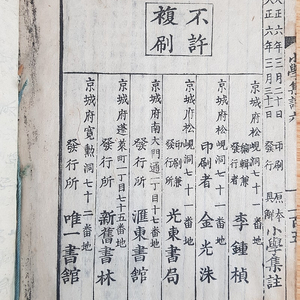 不許
複刷
大正六年三月二十日 印刷
大正六年三月二十三日 發行
具解 小學集註
京城府松峴洞七十一番地
編輯兼發行者 李鍾楨
京城府松峴洞七十一番地
印刷者 金光洙
京城府松峴洞七十一番地
印刷兼發行所 光東書局
京城府南大門通一丁目十七番地
發行所 滙東書館
京城府蓬萊町一丁目七十五番地
發行所 新舊書林
京城府寬勲洞七十二番地
發行所 唯一書館